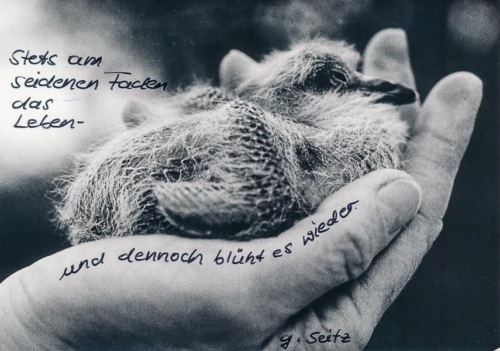 Stets am
seidenen Faden
das
Leben-
und dennoch blüht es wieder.
g. Seitz